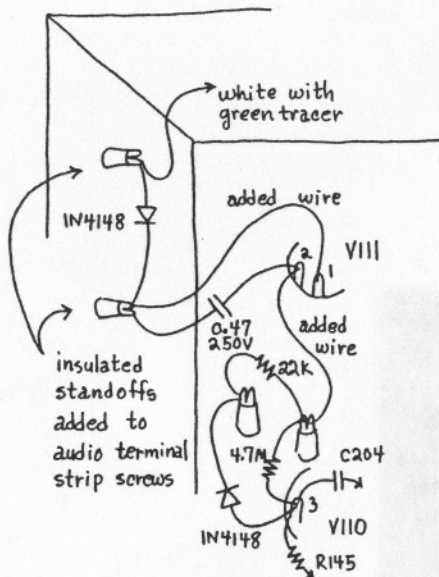 white with
green tracer
IN4148
added wire
2
1
V111
0.47
250V
added
wire
insulated
standoffs
added to
audio terminal
strip screws
22K
4.7M
C204
3
IN4148
V110
R145